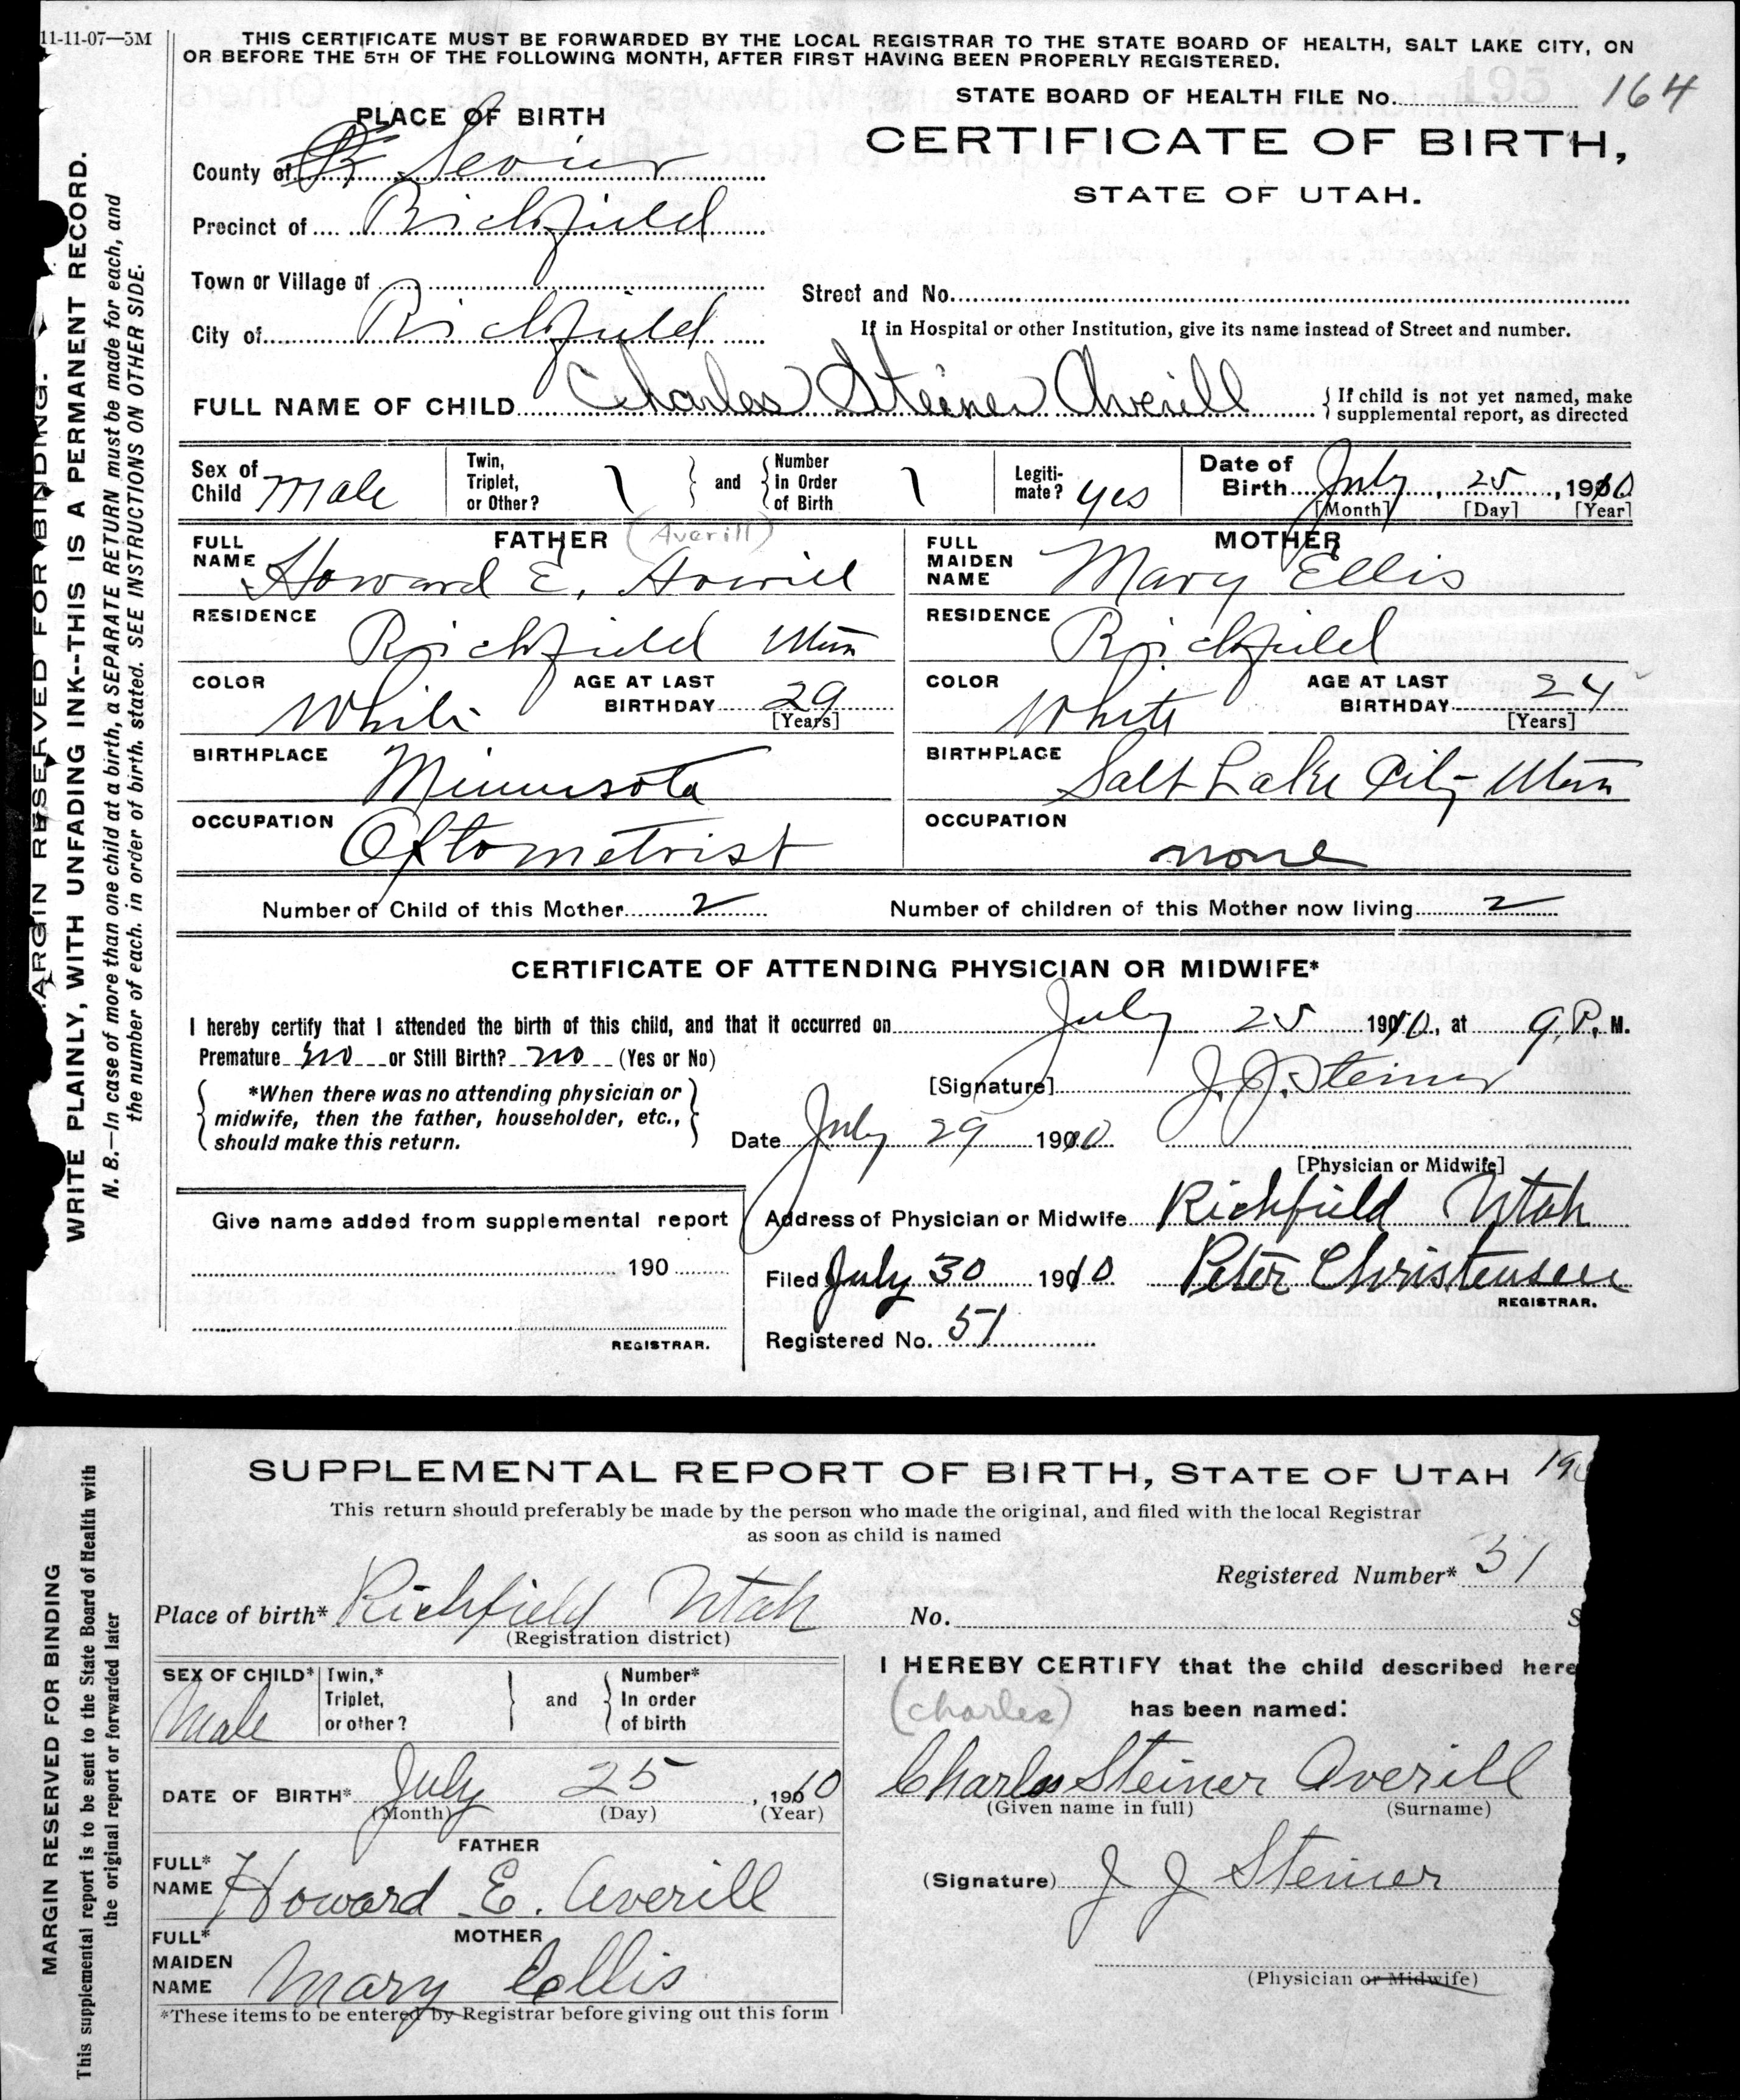 11-11-07—5M
THIS CERTIFICATE MUST BE FORWARDED BY THE LOCAL REGISTRAR TO THE STATE BOARD OF HEALTH, SALT LAKE CITY, ON
OR BEFORE THE 5TH OF THE FOLLOWING MONTH, AFTER FIRST HAVING BEEN PROPERLY REGISTERED.
STATE BOARD OF HEALTH FILE No. 195 164
PLACE OF BIRTH
CERTIFICATE OF BIRTH,
STATE OF UTAH.
County of Sevier
Precinct of Richfield
Town or Village of
Street and No.
City of Richfield
If in Hospital or other Institution, give its name instead of Street and number.
FULL NAME OF CHILD Charles Steiner Averill { If child is not yet named, make supplemental report, as directed
Sex of Child Male
Twin, Triplet, or Other? 1 } and { Number in Order of Birth 1
Legitimate? yes
Date of Birth July, 25, 1910
[Month] [Day] [Year]
FATHER (Averill)
FULL NAME Howard E. Averill
RESIDENCE Richfield Utah
COLOR White
AGE AT LAST BIRTHDAY 29 [Years]
BIRTHPLACE Minnesota
OCCUPATION Oftometrist
MOTHER
FULL MAIDEN NAME Mary Ellis
RESIDENCE Richfield
COLOR White
AGE AT LAST BIRTHDAY 24 [Years]
BIRTHPLACE Salt Lake City Utah
OCCUPATION none
Number of Child of this Mother 2
Number of children of this Mother now living 2
CERTIFICATE OF ATTENDING PHYSICIAN OR MIDWIFE*
I hereby certify that I attended the birth of this child, and that it occurred on July 25 1910, at 9 P. M.
Premature no or Still Birth? no (Yes or No)
*When there was no attending physician or
midwife, then the father, householder, etc.,
should make this return.
[Signature] J. J. Steiner
Date July 29 1910
[Physician or Midwife]
Give name added from supplemental report
190
REGISTRAR.
Address of Physician or Midwife Richfield Utah
Filed July 30 1910 Peter Christensen
REGISTRAR.
Registered No. 51
MARGIN RESERVED FOR BINDING.
WRITE PLAINLY, WITH UNFADING INK--THIS IS A PERMANENT RECORD.
N. B.—In case of more than one child at a birth, a SEPARATE RETURN must be made for each, and
the number of each, in order of birth, stated. SEE INSTRUCTIONS ON OTHER SIDE.
SUPPLEMENTAL REPORT OF BIRTH, STATE OF UTAH
This return should preferably be made by the person who made the original, and filed with the local Registrar
as soon as child is named
Registered Number* 51
Place of birth* Richfield Utah No.
(Registration district)
SEX OF CHILD* Male
Twin,* Triplet, or other? } and { Number* In order of birth
DATE OF BIRTH* July 25, 1910
(Month) (Day) (Year)
FATHER
FULL* NAME Howard E. Averill
MOTHER
FULL* MAIDEN NAME Mary Ellis
*These items to be entered by Registrar before giving out this form
I HEREBY CERTIFY that the child described here
(Charles) has been named:
Charles Steiner Averill
(Given name in full) (Surname)
(Signature) J J Steiner
(Physician or Midwife)
MARGIN RESERVED FOR BINDING
This supplemental report is to be sent to the State Board of Health with
the original report or forwarded later